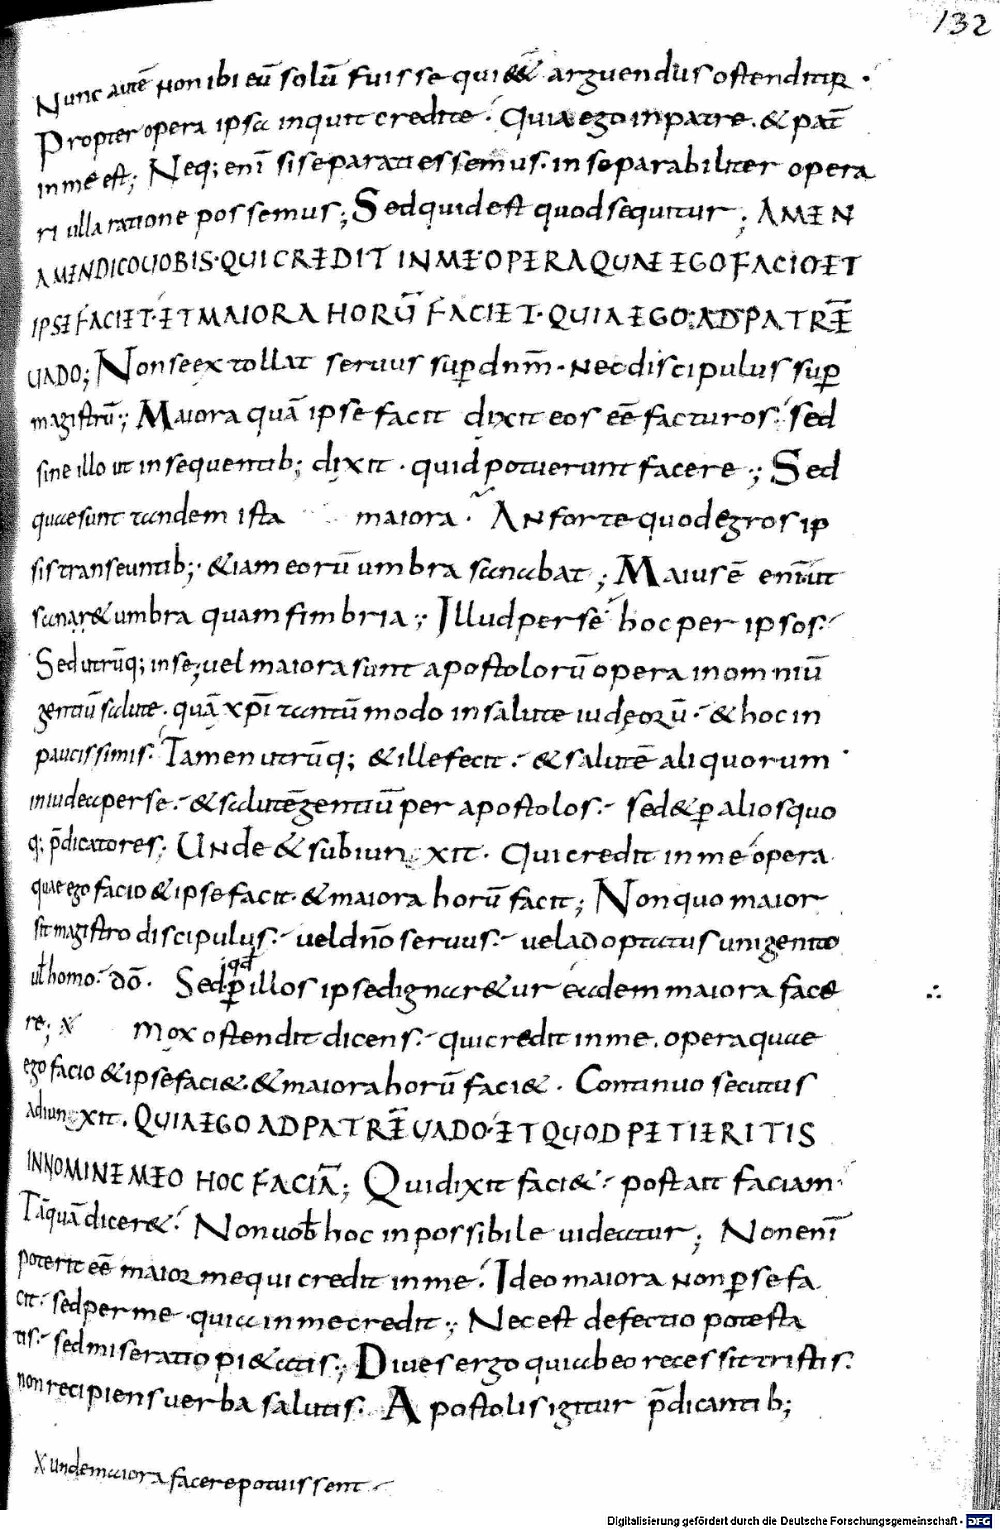 132
Nunc autē non ibi eū solū fuisse qui &&̄ arguendus ostenditur ·
Propter opera ipsa inquit credite · Quia ego in patre · & pat̄
in me est; Neq; enī si separati essemus · inseparabiliter opera
ri ulla ratione possemus; Sed quid est quod sequitur; AMEN
AMEN DICO UOBIS · QUI CREDIT IN ME OPERA QUAE EGO FACIO ET
IPSE FACIET · ET MAIORA HORŪ FACIET · QUIA EGO AD PATRĒ
UADO; Non se extollat seruus sup dnm̄ · nec discipulus sup
magistrū; Maiora quā ipse facit dixit eos eē facturos · sed
sine illo ut in sequentib; dixit · quid potuerunt facere; Sed
quae sunt tandem ista maiora · An forte quod egros ip
sis transeuntib; · & iam eorū umbra sanabat; Maius ē enī ut
sanar& umbra quam fimbria; Illud per se hoc per ipsos ·
Sed utrūq; in se; uel maiora sunt apostolorū opera in omniū
gentiū salute · quā xpī tantū modo in salute iudeorū · & hoc in
paucissimis · Tamen utrūq; & ille fecit · & salutē aliquorum
in iudea per se · & salutē gentiū per apostolos · sed & p alios quo
q; p̄dicatores; Unde & subiunxit · Qui credit in me opera
quae ego facio & ipse facit · & maiora horū facit; Non quo maior
sit magistro discipulus · uel dn̄o seruus · uel adoptatus unigenito
ut̄ homo · dō · Sed p illos ipse dignar&ur eadem maiora face
iqd̄
re; x mox ostendit dicens · qui credit in me · opera quae
ego facio & ipse faci& · & maiora horū faci& · Continuo secutus
adiunxit · QUIA EGO AD PATRĒ UADO · ET QUOD PETIERITIS
IN NOMINE MEO HOC FACIĀ; Qui dixit faci& · postait faciam ·
Tāquā dicer& · Non uob̄ hoc inpossibile uideatur; Non enī
poterit eē maior me qui credit in me · Ideo maiora non p se fa
cit · sed per me · quia in me credit; Nec est defectio potesta
tis · sed miseratio pi&atis; Diues ergo qui ab eo recessit tristis ·
non recipiens uerba salutis · Apostolis igitur p̄dicantib;
x unde maiora facere potuissent
Digitalisierung gefördert durch die Deutsche Forschungsgemeinschaft - DFG